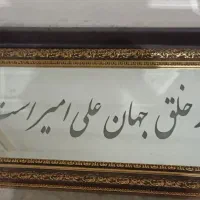 خلق جهان علی امیر است